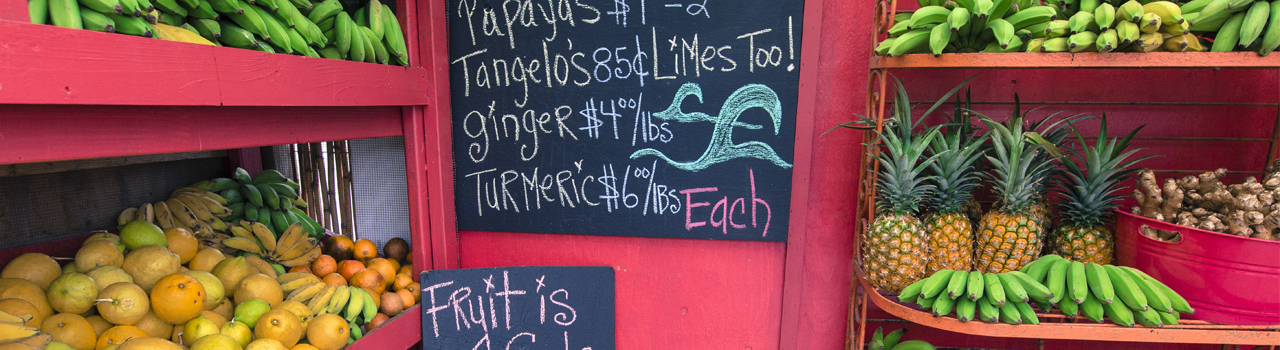 Papayas $1-2
Tangelo's 85¢ Limes Too!
ginger $4⁰⁰/lbs
Turmeric $6⁰⁰/lbs Each
Fruit is